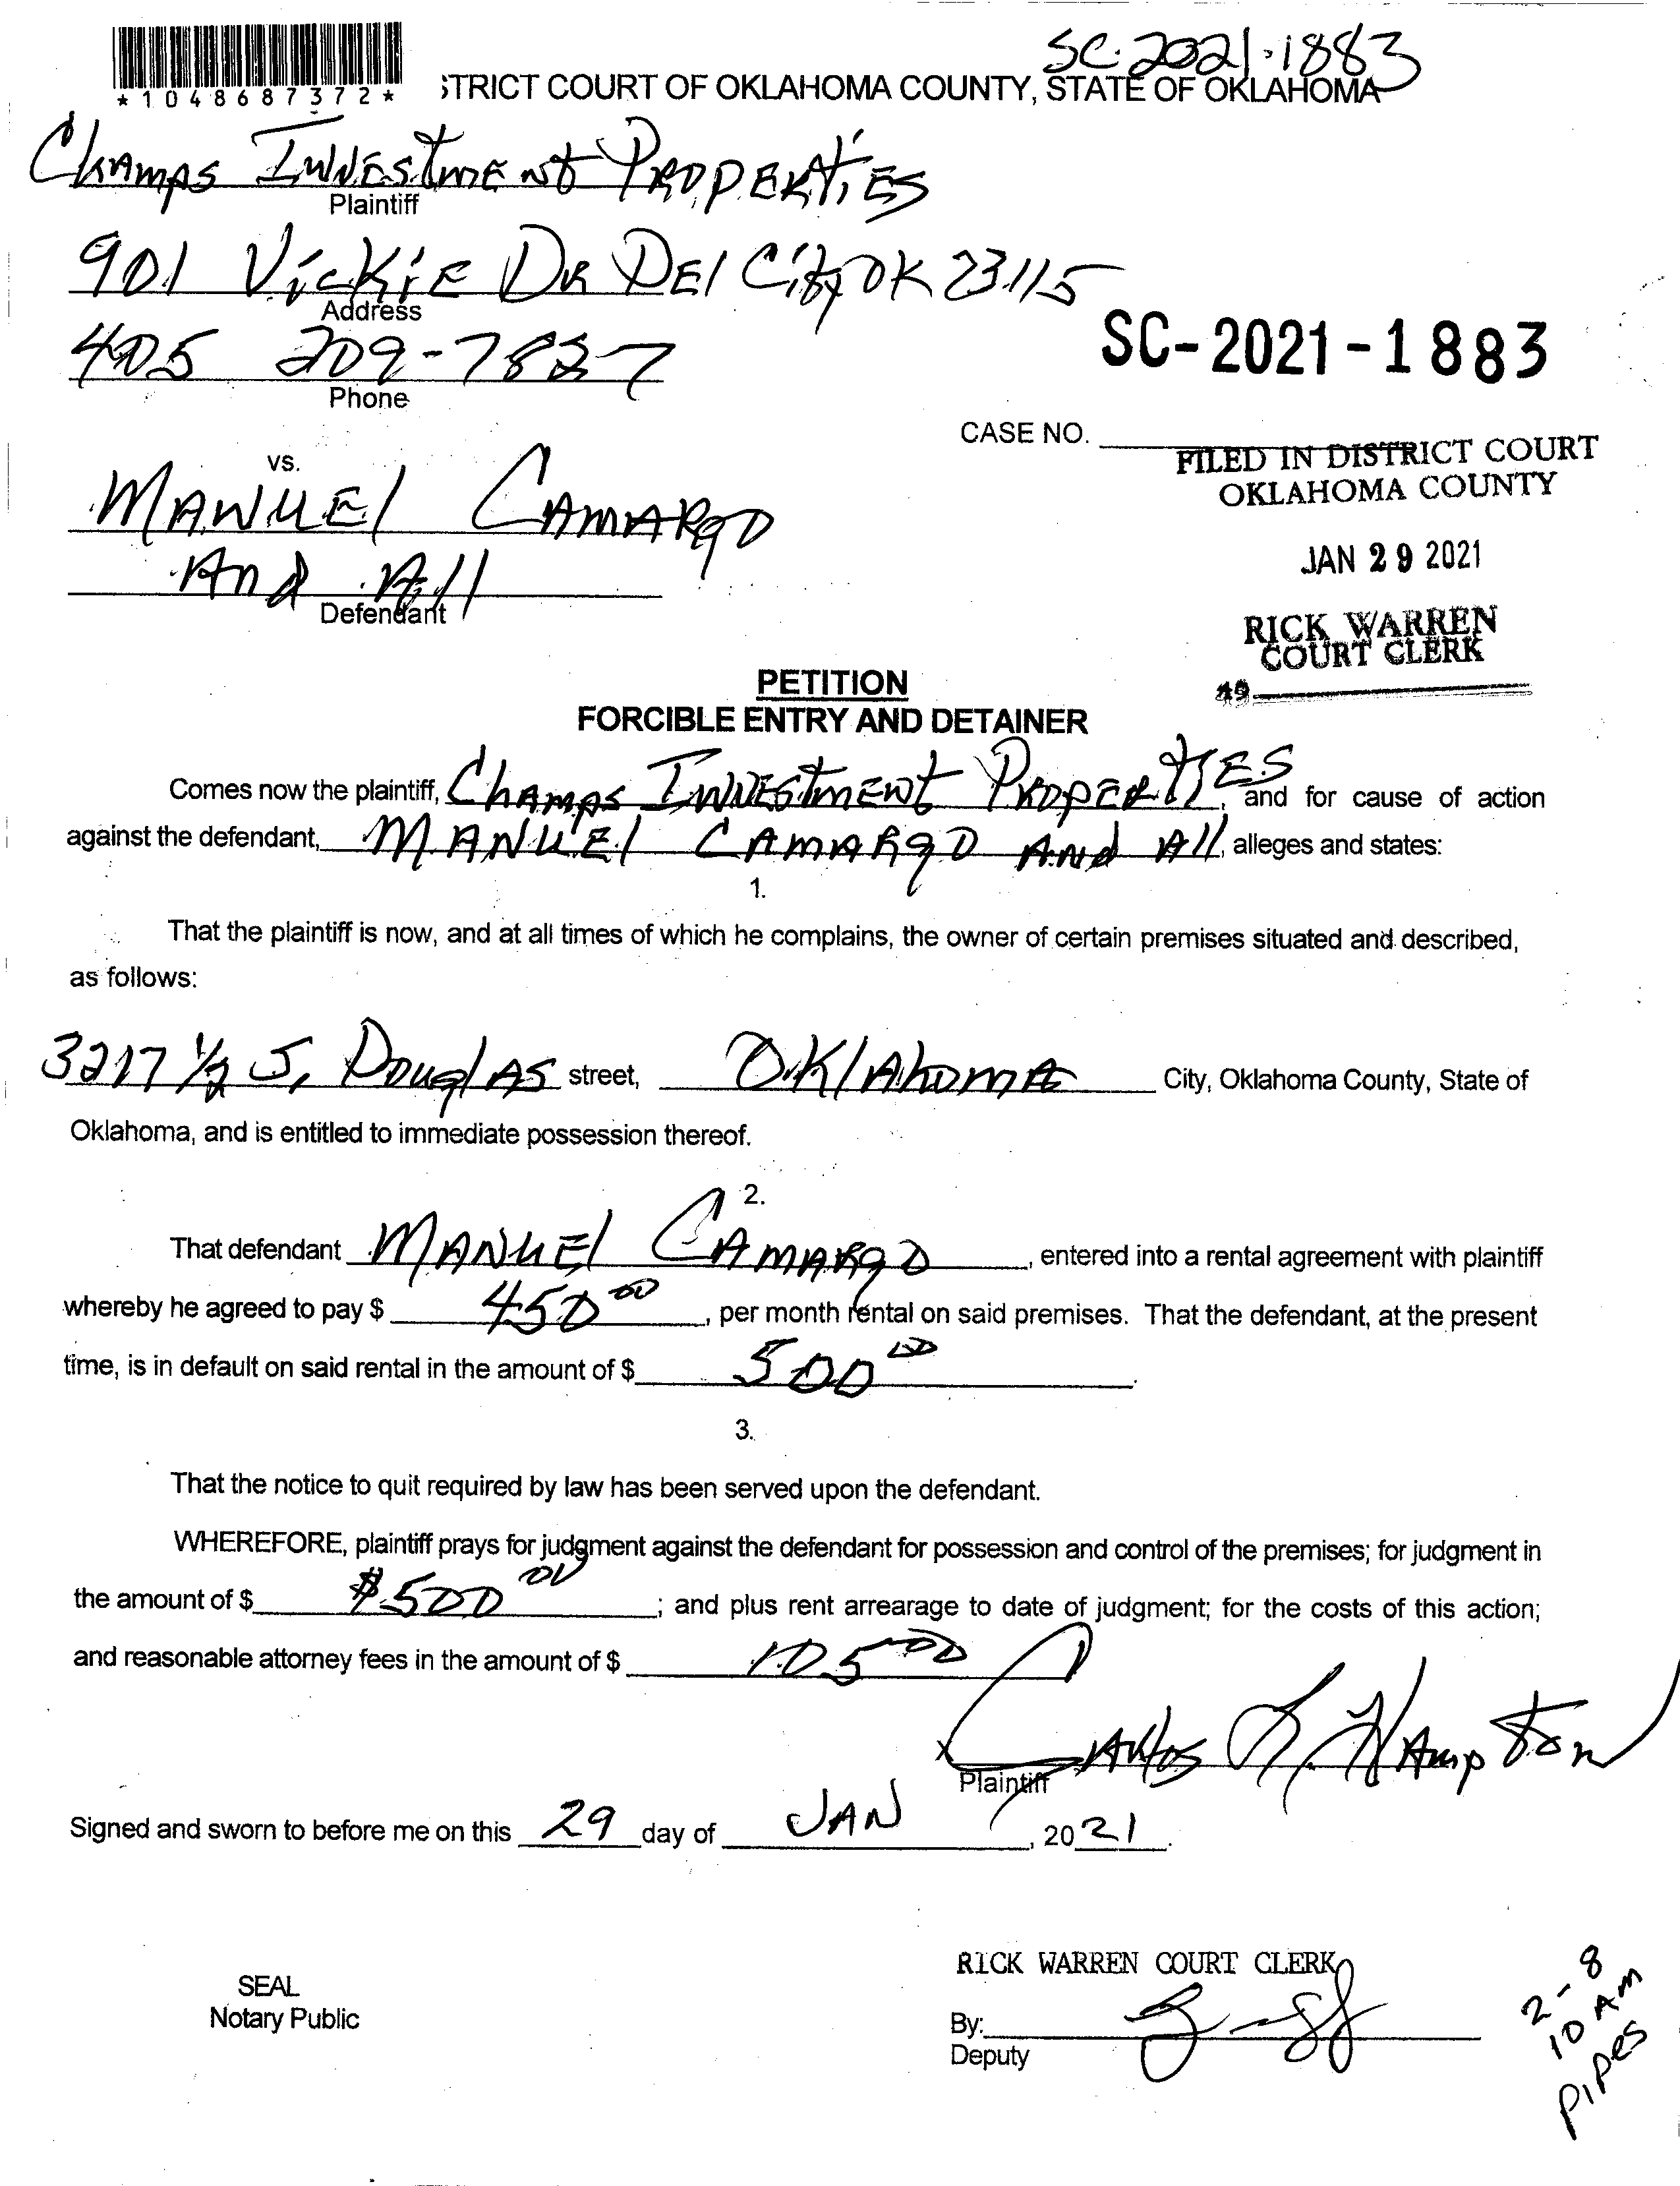 SC-2021-1883
*1048687372*
STRICT COURT OF OKLAHOMA COUNTY, STATE OF OKLAHOMA
Champs Investment Properties
Plaintiff
901 Vickie Dr Del City OK 23115
Address
405 209-7827
Phone
SC-2021-1883
CASE NO.
FILED IN DISTRICT COURT
OKLAHOMA COUNTY
JAN 29 2021
RICK WARREN
COURT CLERK
49
vs.
Manuel Camargo
And All
Defendant
PETITION
FORCIBLE ENTRY AND DETAINER
Comes now the plaintiff, Champs Investment Properties, and for cause of action
against the defendant, Manuel Camargo And All, alleges and states:
1.
That the plaintiff is now, and at all times of which he complains, the owner of certain premises situated and described,
as follows:
3217 1/2 S, Douglas street, Oklahoma City, Oklahoma County, State of
Oklahoma, and is entitled to immediate possession thereof.
2.
That defendant Manuel Camargo, entered into a rental agreement with plaintiff
whereby he agreed to pay $ 450 00, per month rental on said premises. That the defendant, at the present
time, is in default on said rental in the amount of $ 500 00.
3.
That the notice to quit required by law has been served upon the defendant.
WHEREFORE, plaintiff prays for judgment against the defendant for possession and control of the premises; for judgment in
the amount of $ $500 00; and plus rent arrearage to date of judgment; for the costs of this action;
and reasonable attorney fees in the amount of $ 105 00
X Carlos L. Hampton
Plaintiff
Signed and sworn to before me on this 29 day of JAN, 2021.
RICK WARREN COURT CLERK
SEAL
Notary Public
By:
Deputy
2-8
10 AM
Pipes